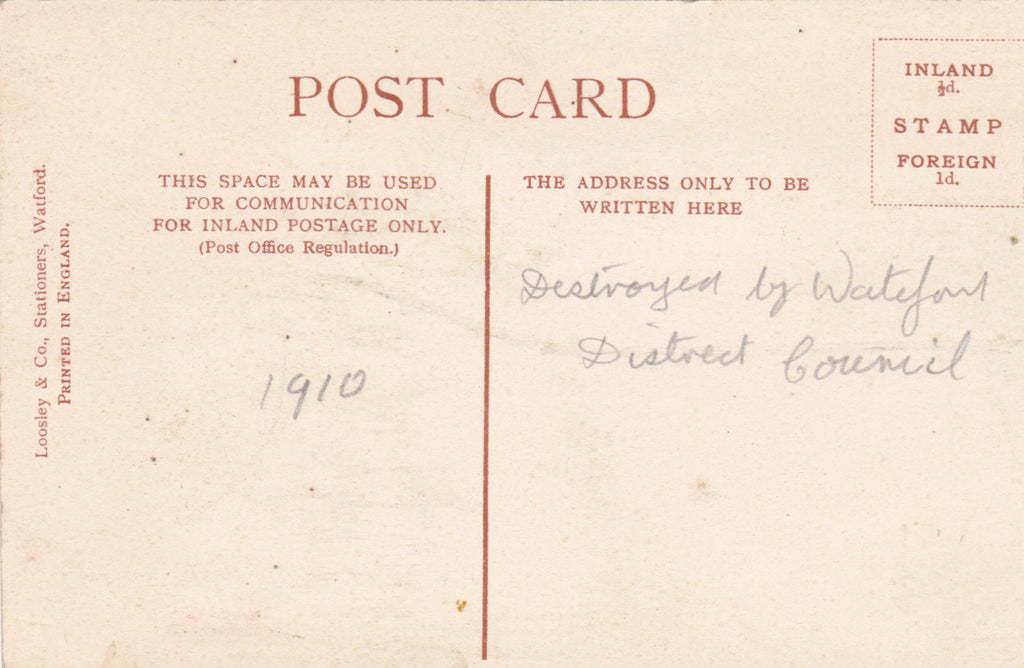 POST CARD
INLAND
½d.
STAMP
FOREIGN
1d.
THIS SPACE MAY BE USED
FOR COMMUNICATION
FOR INLAND POSTAGE ONLY.
(Post Office Regulation.)
THE ADDRESS ONLY TO BE
WRITTEN HERE
Loosley & Co., Stationers, Watford.
PRINTED IN ENGLAND.
1910
Destroyed by Wateford
District Council